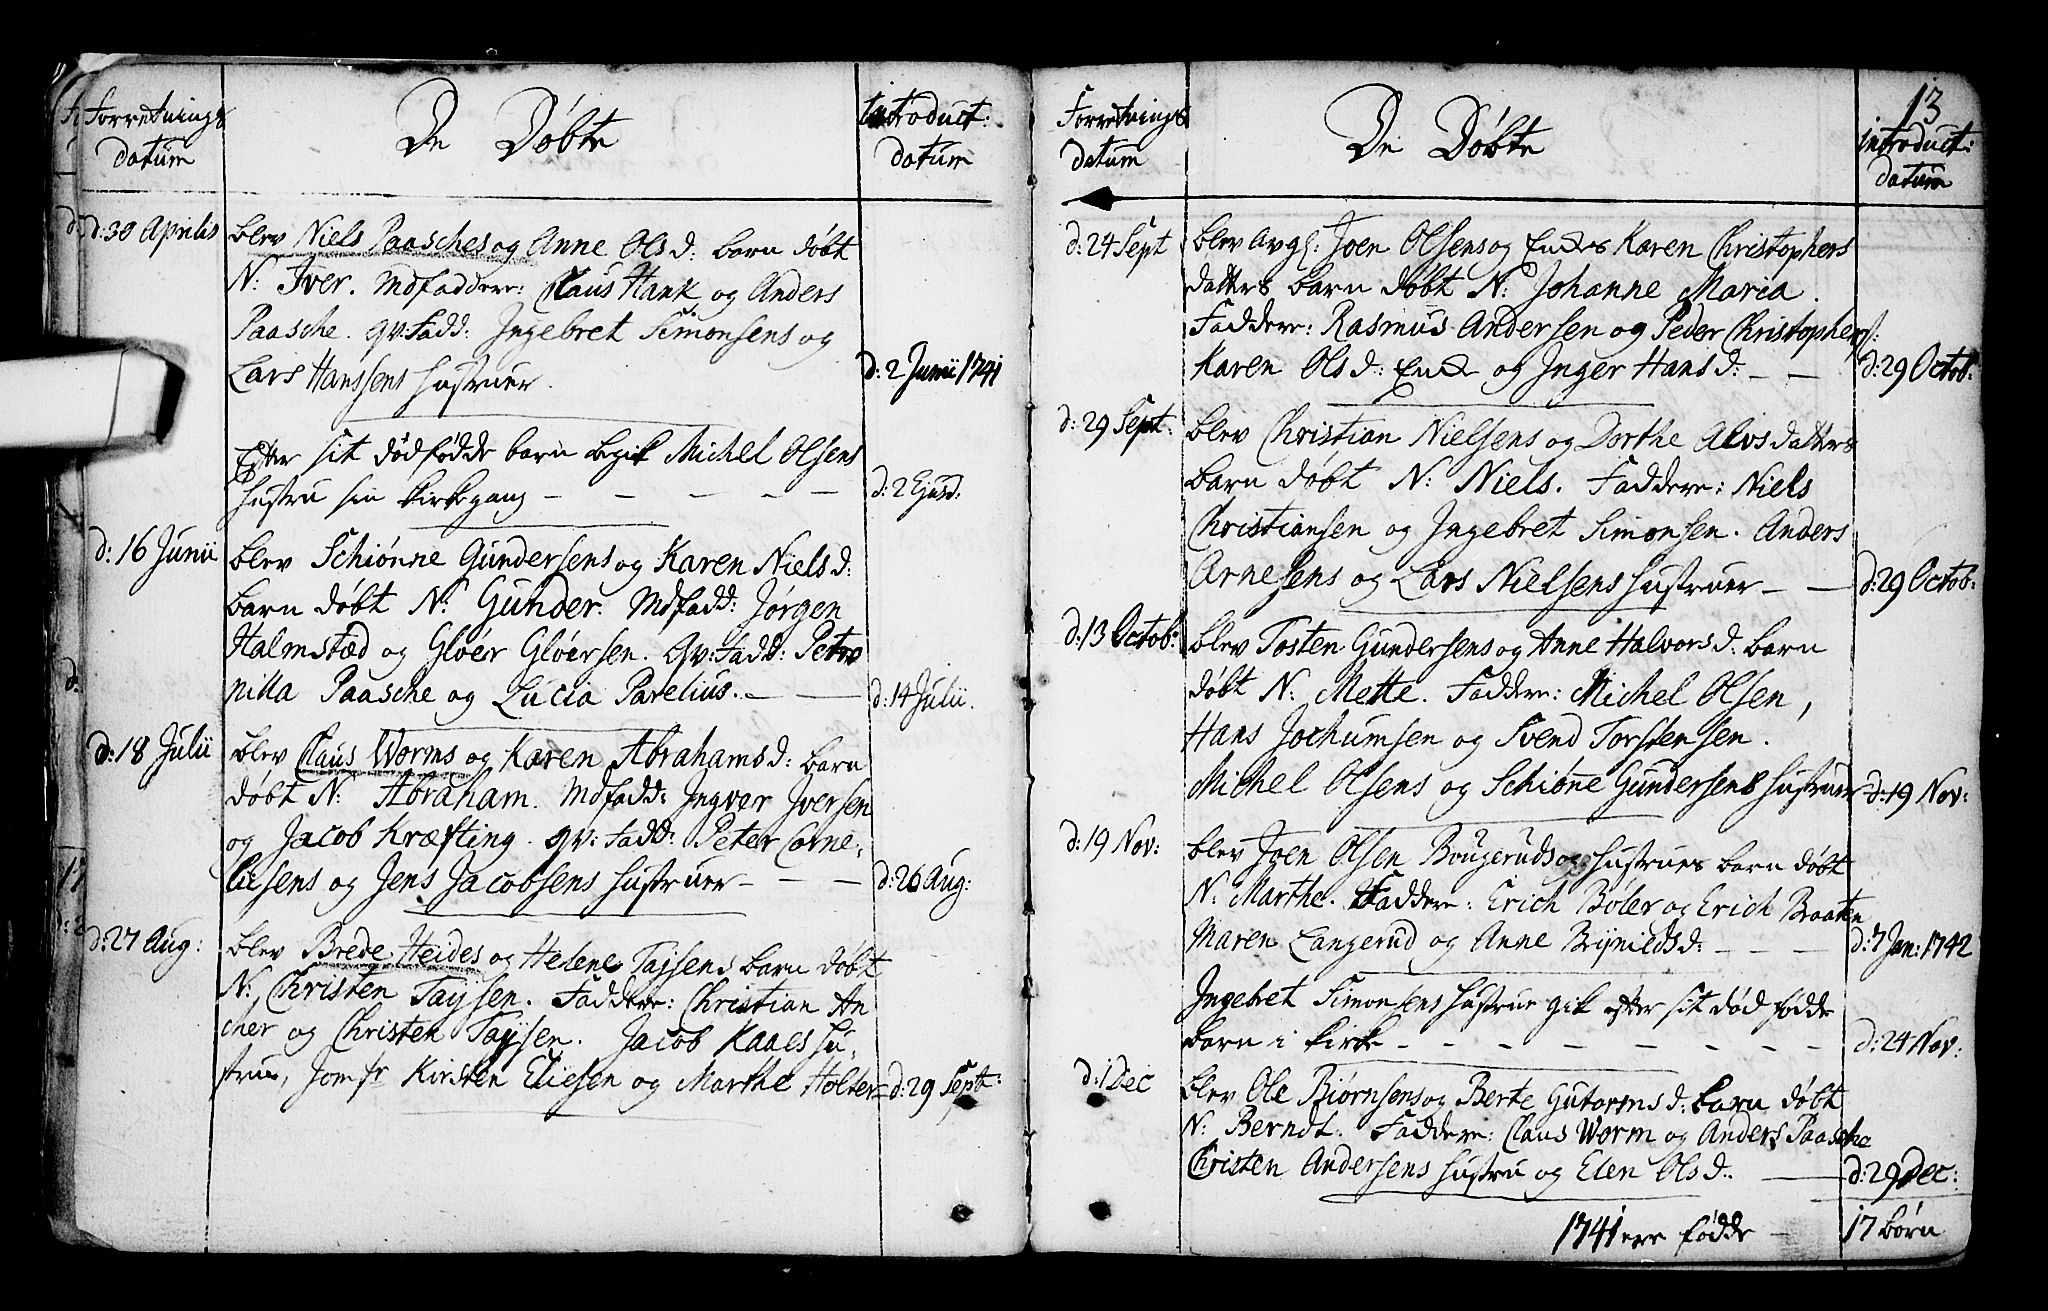 Forretnings
datum
De Døbte
introduct:
datum
d: 30 Aprilis
blev Niels Paasches og Anne Olsd: barn døbt
N: Iver. Mdfaddere: Claus Hank og Anders
Paasche. qv: Fadd: Ingebret Simonsens og
Lars Hanssens Hustruer.
d: 2 Junii 1741
Efter sit dødfødde barn begik Michel Olsens
Hustru sin kirkegang — — — — —
d: 2 Ejusd:
d: 16 Junii
blev Schiønne Gundersens og Karen Nielsd:
barn døbt N: Gunder. Mdfadd: Jørgen
Halmstæd og Gløer Gløersen. qv: Fadd: Petro
nilla Paasche og Lucia Parelius. — —
d: 14 Julii.
d: 18 Julii
blev Claus Worms og Karen Abrahamsd: barn
døbt N: Abraham. Mdfadd: Ingvar Iversen
og Jacob Kræfting. qv: Fadd: Peter Corne,
liisens og Jens Jacobsens Hustruer — — —
d: 26 Aug:
d: 27 Aug:
blev Brede Heides og Helene Taysens barn døbt
N: Christen Taysen. Faddere: Christian An
cher og Christen Taysen. Jacob Kaaes Hu,
strue, Jomfr Kirsten Eliesen og Marthe Holter
d: 29 Sept:
13
Forretnings
datum
De Døbte
introduct:
datum
d: 24 Sept
blev Avgl: Joen Olsens og Enkes Karen Christophers
datters barn døbt N: Johanne Maria.
Faddere: Rasmus Andersen og Peder Christophers:
Karen Olsd: Enke og Inger Hansd: — —
d: 29 Octob:
d: 29 Sept:
blev Christian Nielsens og Dorthe Alvsdatters
barn døbt N: Niels. Faddere: Niels
Christiansen og Ingebret Simonsen. Anders
Arnesens og Lars Nielsens Hustruer — —
d: 29 Octob:
d: 13 Octob:
blev Tosten Gundersens og Anne Halvorsd: barn
døbt N: Mette. Faddere: Michel Olsen,
Hans Jochumsen og Svend Torstensen.
Michel Olsens og Schiøne Gundersens Hustruer
d: 19 Nov:
d: 19 Nov:
blev Joen Olsen Bougeruds og Hustrues barn døbt
N: Marthe. Faddere: Erich Bøler og Erich Braaten
Maren Langerud og Anne Brynildsd: — — —
d: 7 Jan: 1742
Ingebret Simonsens Hustrue gik efter sit død fødde
barn i kirke — — — — — — — —
d: 24 Nov:
d: 1 Dec
blev Ole Biørnsens og Berte Gutormsd: barn døbt
N: Berndt. Faddere: Claus Worm og Anders Paasche
Christen Andersens Hustru og Elen Olsd: —
d: 29 Dec:
1741 ere fødde — 17 børn